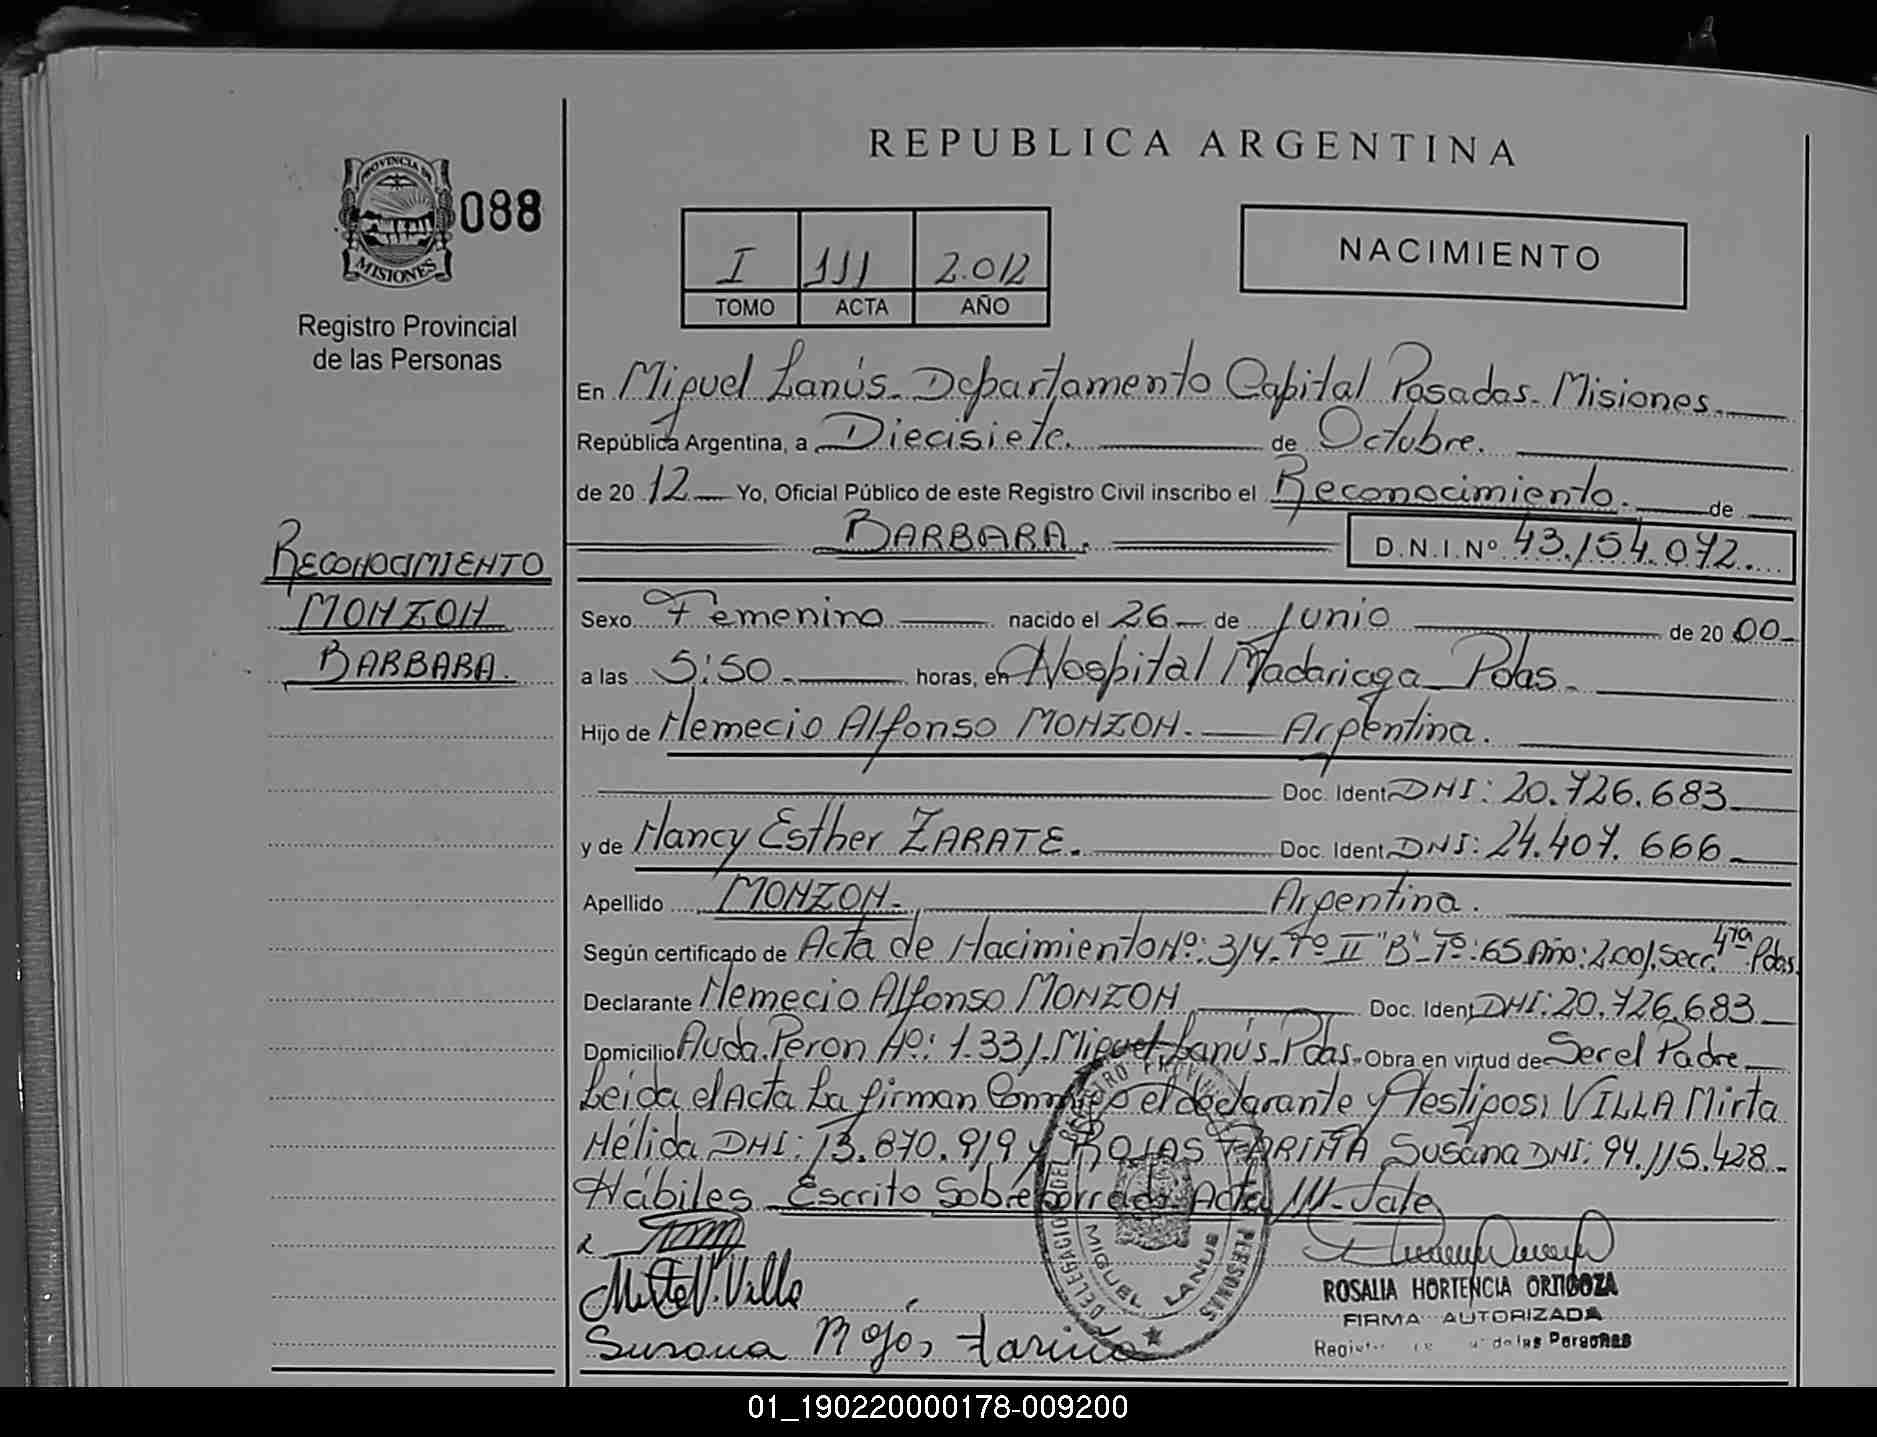 REPUBLICA ARGENTINA
PROVINCIA DE
MISIONES
088
Registro Provincial
de las Personas
I 111 2.012
TOMO ACTA AÑO
NACIMIENTO
En Miguel Lanús. Departamento Capital Posadas. Misiones.
República Argentina, a Diecisiete. de Octubre.
de 20 12 Yo, Oficial Público de este Registro Civil inscribo el Reconocimiento. de
BARBARA. D.N.I.Nº 43.154.072.
RECONOCIMIENTO
MONZON
BARBARA.
Sexo Femenino nacido el 26 de Junio de 20 00
a las 5:50 horas, en Hospital Madariaga Pdas.
Hijo de Nemecio Alfonso MONZON. Argentina.
Doc. Ident. DNI: 20.726.683
y de Nancy Esther ZARATE. Doc. Ident. DNI: 24.407.666
Apellido MONZON. Argentina.
Según certificado de Acta de Nacimiento Nº: 314. Tº II "B" Fº: 65 Año: 2.001. Secc. 4ta Pdas.
Declarante Nemecio Alfonso MONZON Doc. Ident. DNI: 20.726.683
Domicilio Avda. Peron Nº: 1.331. Miguel Lanús. Pdas. Obra en virtud de Ser el Padre
Leida el Acta La firman Conmigo el declarante y Testigos: VILLA Mirta
Nélida DNI: 13.870.919 y ROJAS FARIÑA Susana DNI: 94.115.428.
Hábiles. Escrito Sobreborrado: Acta 111. Vale
Susana Rojas Fariña
DELEGACION DEL REGISTRO PROVINCIAL PERSONAS
MIGUEL LANUS
ROSALIA HORTENCIA ORTIGOZA
FIRMA AUTORIZADA
de las Personas
01_190220000178-009200